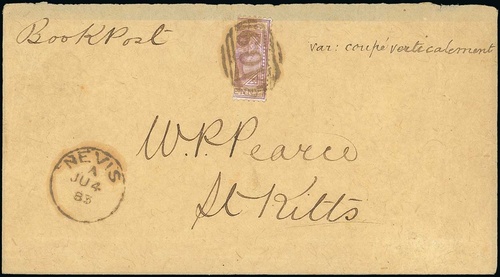 BookPost
var: coupé verticalement
A09
W.P. Pearce
St. Kitts
NEVIS
A
JU 4
83